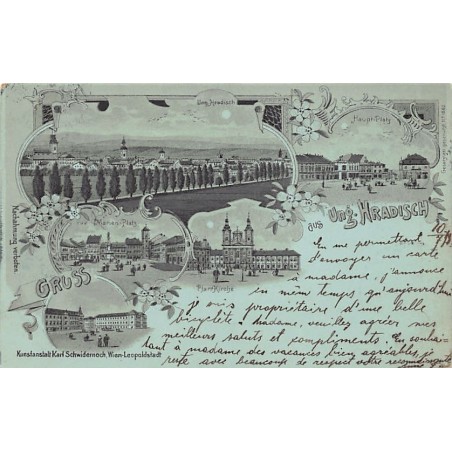 Ung. Hradisch
Haupt-Platz
Marien-Platz
Pfarr-Kirche
GRUSS
aus UNG. HRADISCH
Nachahmung verboten.
Kunstanstalt Karl Schwidernoch, Wien-Leopoldstadt
10/
En me permettant
d'envoyer un carte
à madame, j'annonce
en même temps qu'aujourd'hui
je suis propriétaire d'une belle
bicyclette. madame, veuillez agréer mes
meilleurs saluts et compliments. En souhai-
tant à madame des vacances bien agréables, je
reste avec beaucoup de respect votre reconnaissante